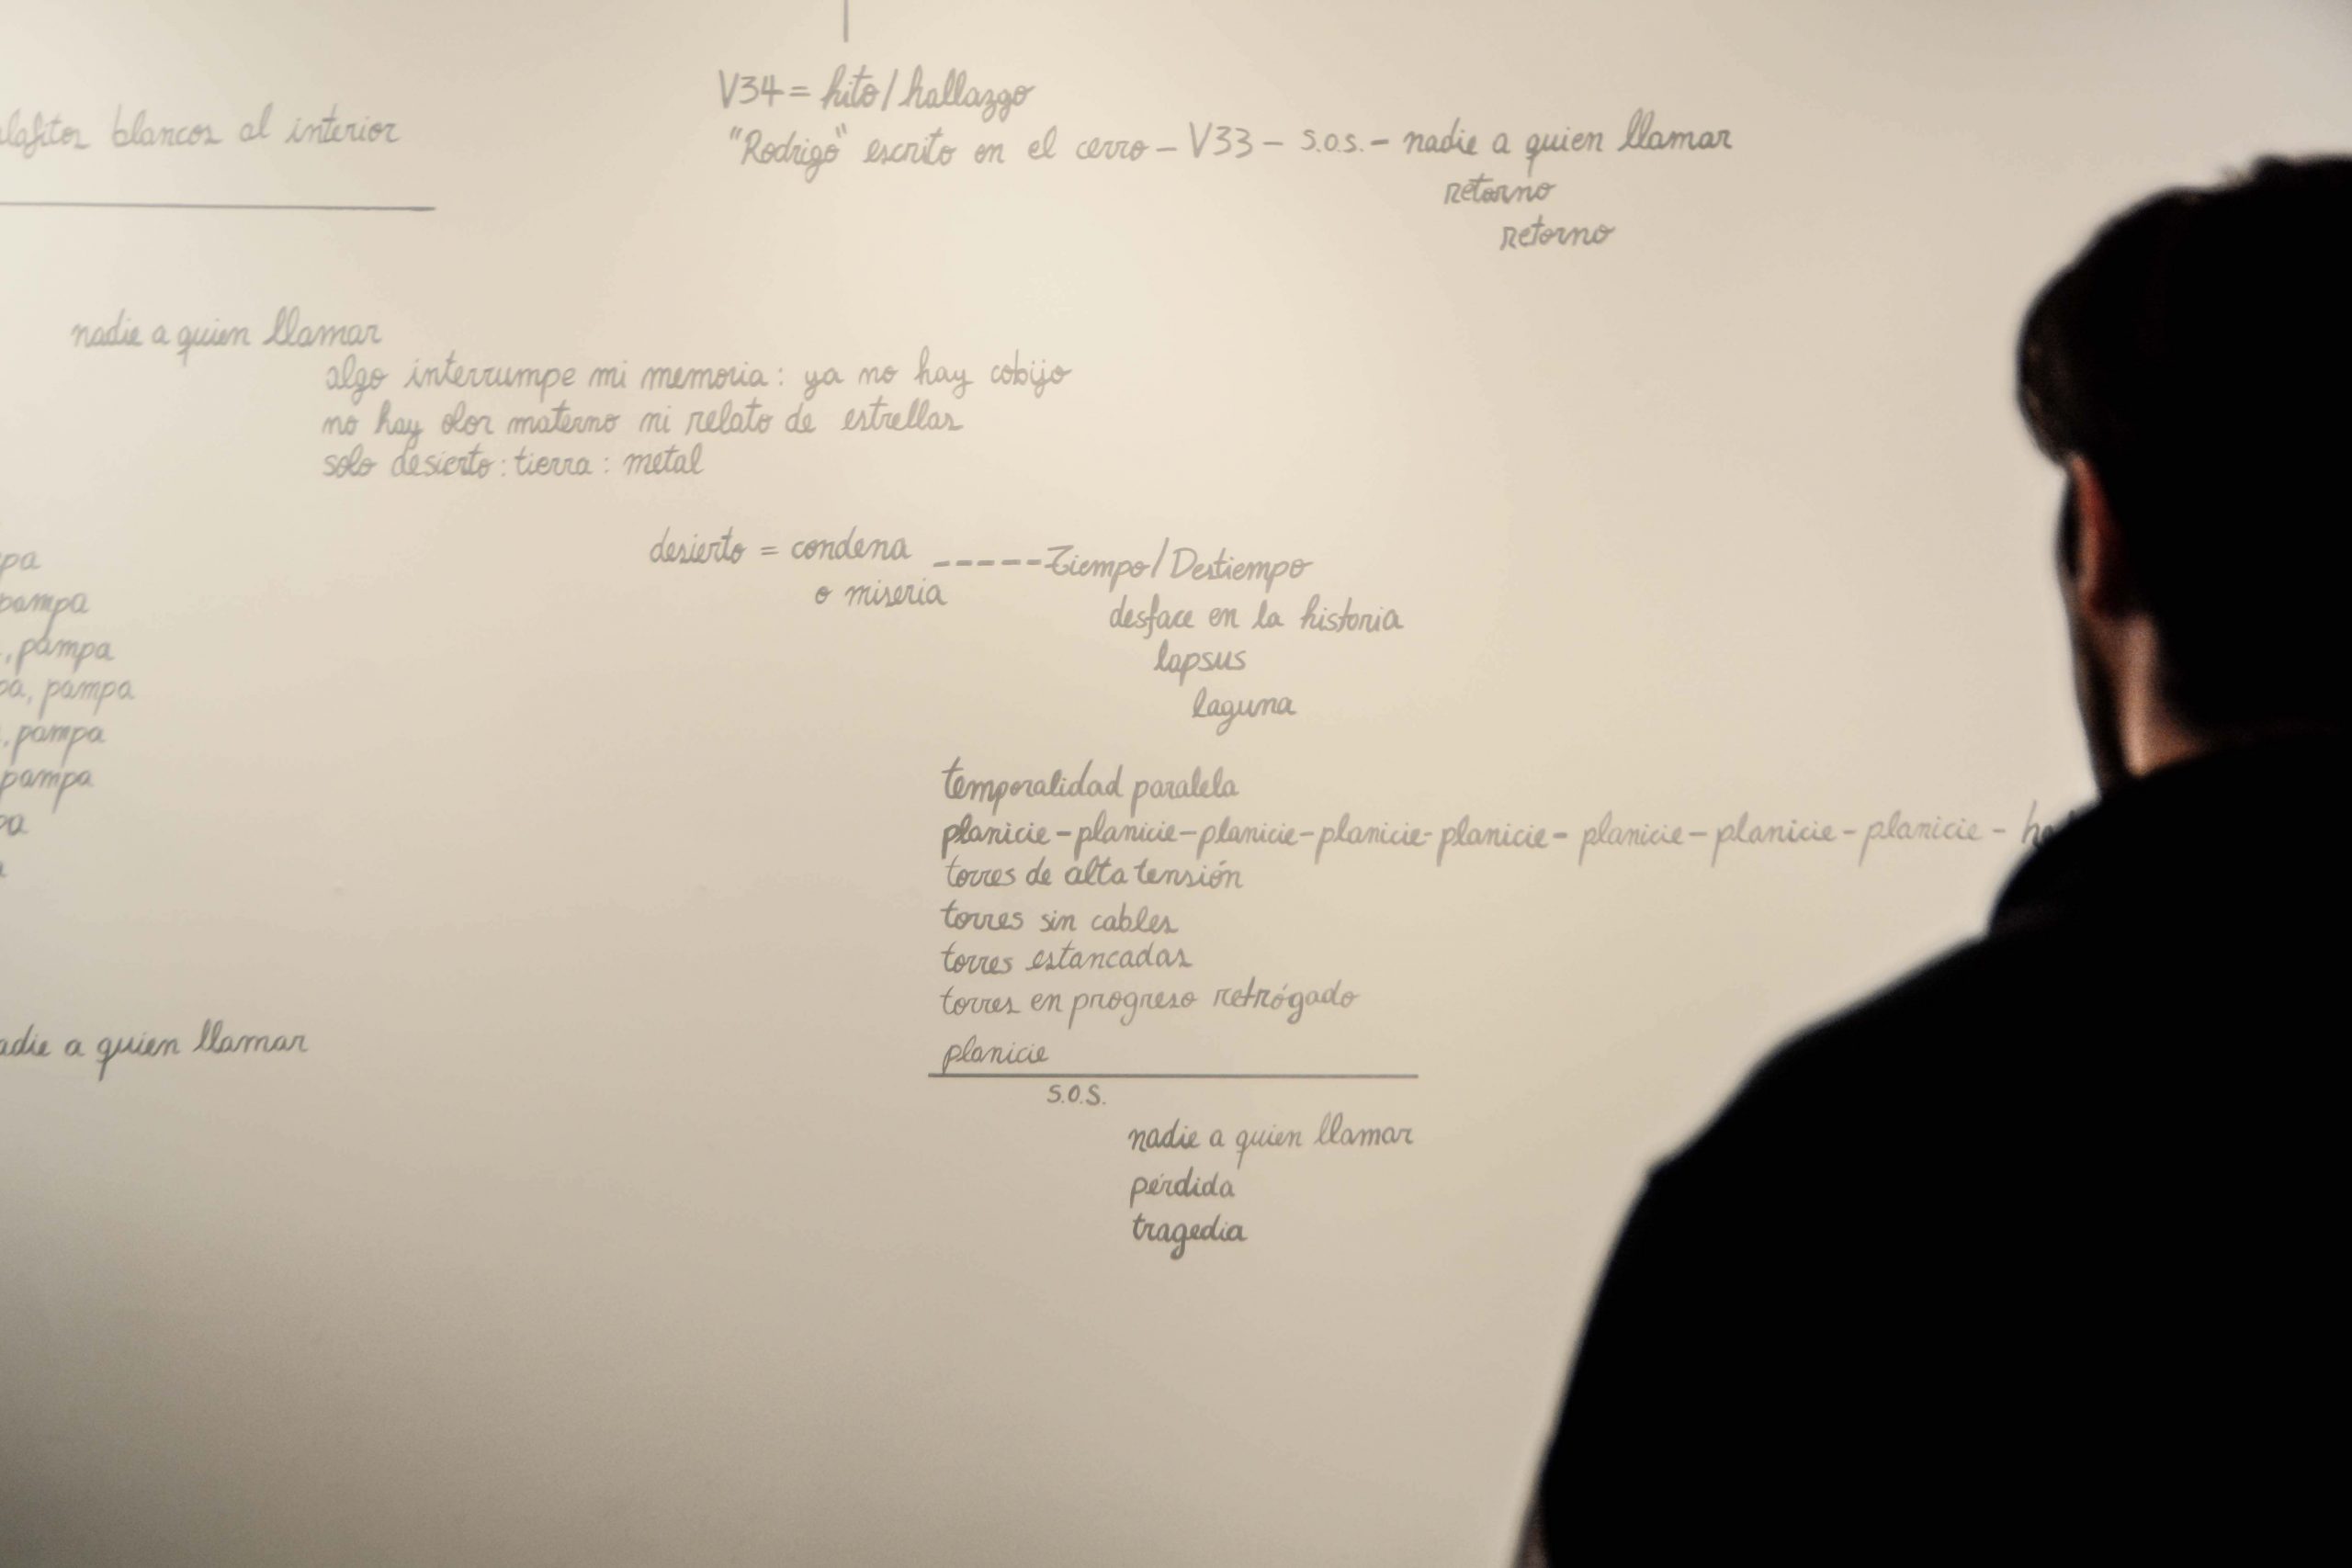 V34 = hito/hallazgo
blancos al interior
"Rodrigo" escrito en el cerro – V33 – S.O.S. – nadie a quien llamar
retorno
retorno
nadie a quien llamar
algo interrumpe mi memoria: ya no hay cobijo
no hay olor materno ni relato de estrellas
solo desierto: tierra: metal
desierto = condena ----- Tiempo/Destiempo
o miseria
desface en la historia
lapsus
laguna
pampa
, pampa
, pampa
, pampa
pampa
temporalidad paralela
planicie – planicie – planicie – planicie – planicie – planicie – planicie – planicie –
torres de alta tensión
torres sin cables
torres estancadas
torres en progreso retrógado
planicie
S.O.S.
a quien llamar
nadie a quien llamar
pérdida
tragedia